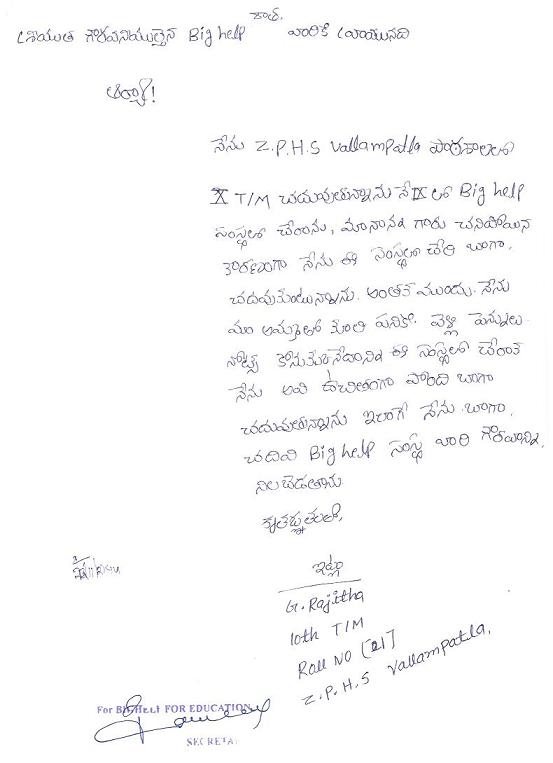 శాఖ.
శ్రీయుత గౌరవనియులైన Big help వారికి వ్రాయునది
ఆర్యా!
నేను Z.P.H.S Vallampatla పాఠశాలలో
X T/M చదువుతున్నాను నే IX లో Big help
సంస్థలో చేరాను, మానాన్న గారు చనిపోయిన
కారణంగా నేను ఈ సంస్థలో చేరి బాగా.
చదువుకుంటున్నాను. అంతకి ముందు. నేను
మా అమ్మతో కూలి పనికి. వెళ్లి పెన్నులు
నోట్స్ కొనుకునేదానిని ఈ సంస్థలో చేరాక
నేను అవి ఉచితంగా పొంది బాగా
చదువుతున్నాను ఇలాగే నేను బాగా.
చదివి Big help సంస్థ వారి గౌరవాన్ని
నిలబెడతాను
కృతజ్ఞతతో,
ఇట్లు
G. Rajitha
10th T/M
Roll NO [21]
Z.P.H.S Vallampatla.
For BIGHELP FOR EDUCATION
SECRETA